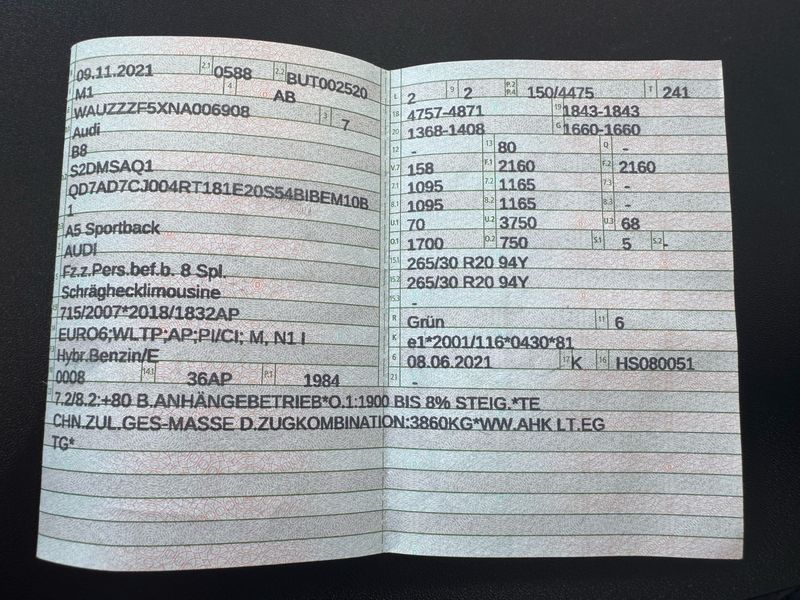 09.11.2021 2.1 0588 2.2 BUT002520
M1 4 AB
WAUZZZF5XNA006908 3 7
Audi
B8
S2DMSAQ1
QD7AD7CJ004RT181E20S54BIBEM10B
1
A5 Sportback
AUDI
Fz.z.Pers.bef.b. 8 Spl.
Schräghecklimousine
715/2007*2018/1832AP
EURO6;WLTP;AP;PI/CI; M, N1 I
Hybr.Benzin/E
0008 14.1 36AP P.1 1984
L 2 9 2 P.2 P.4 150/4475 T 241
18 4757-4871 19 1843-1843
20 1368-1408 G 1660-1660
12 - 13 80 Q -
V.7 158 F.1 2160 F.2 2160
7.1 1095 7.2 1165 7.3 -
8.1 1095 8.2 1165 8.3 -
U.1 70 U.2 3750 U.3 68
O.1 1700 O.2 750 S.1 5 S.2 -
15.1 265/30 R20 94Y
15.2 265/30 R20 94Y
15.3 -
R Grün 11 6
K e1*2001/116*0430*81
6 08.06.2021 17 K 16 HS080051
21 -
7.2/8.2:+80 B.ANHÄNGEBETRIEB*O.1:1900 BIS 8% STEIG.*TE
CHN.ZUL.GES-MASSE D.ZUGKOMBINATION:3860KG*WW.AHK LT.EG
TG*